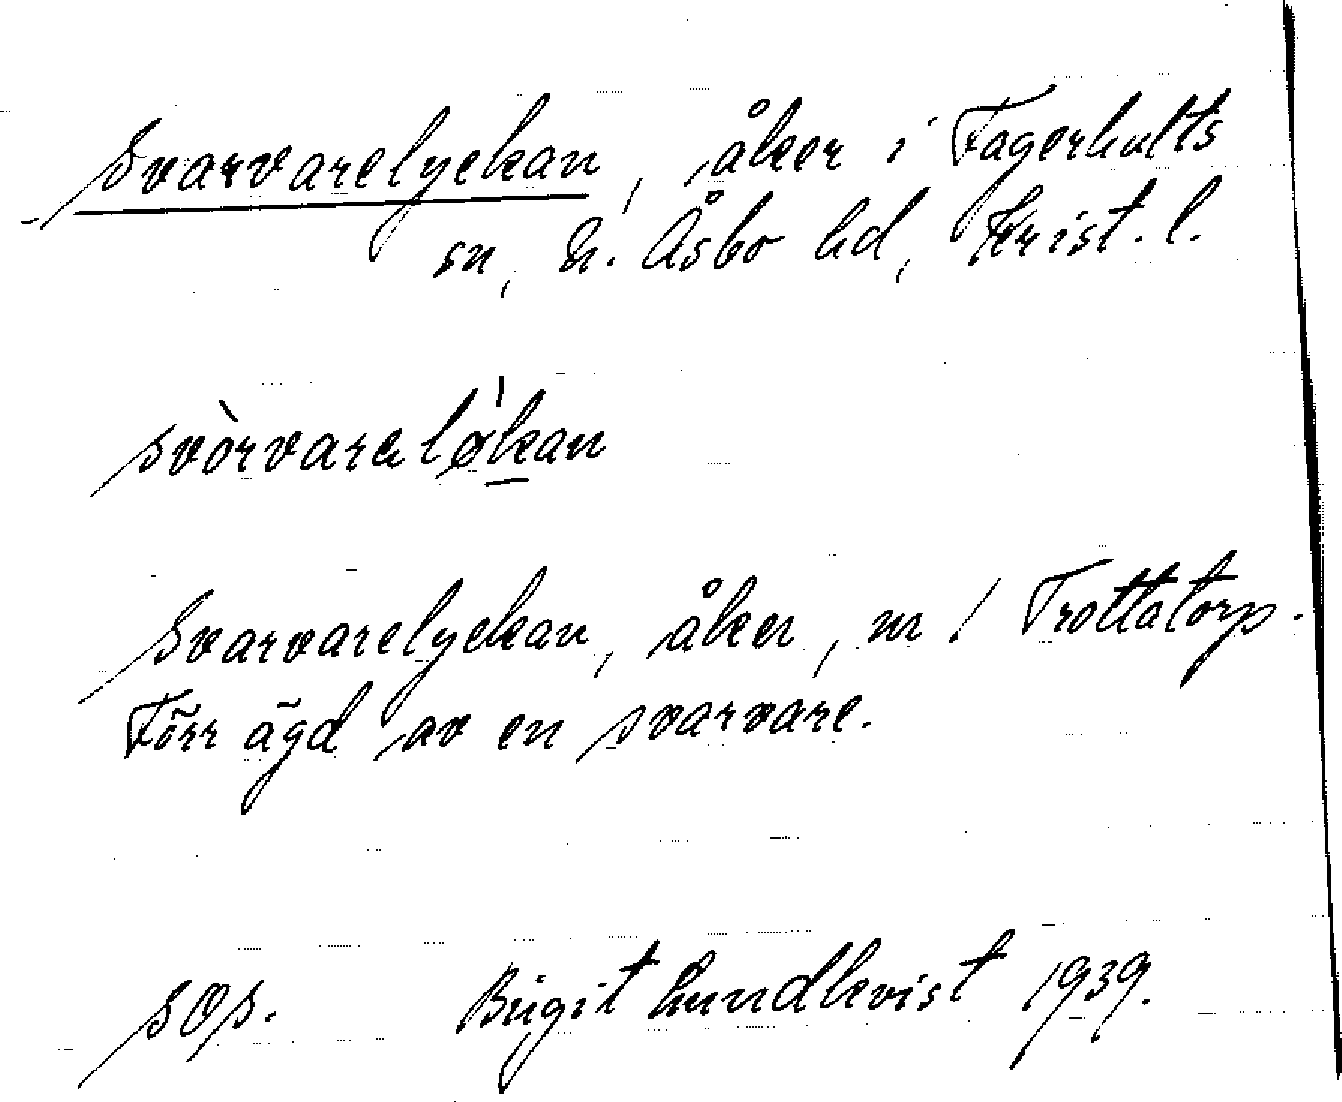 Svarvarelyckan, åker i Fagerhults
sn, N. Åsbo hd, Krist. l.
svòrvarelø̍kan
Svarvarelyckan, åker, m / Trottatorp.
Förr ägd av en svarvare.
sos. Birgit Lundkvist 1939.